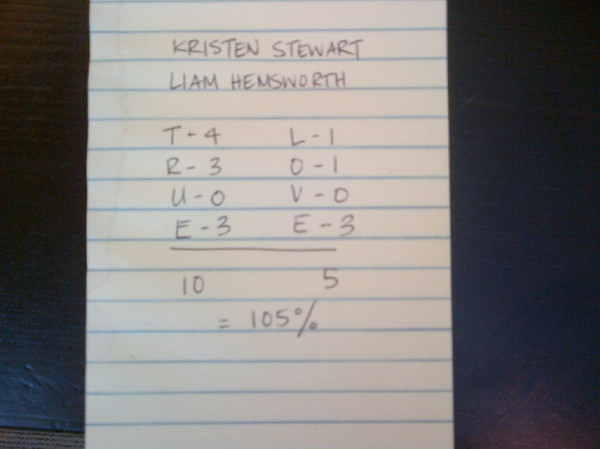 KRISTEN STEWART
LIAM HEMSWORTH
T-4 L-1
R-3 O-1
U-0 V-0
E-3 E-3
10 5
= 105%